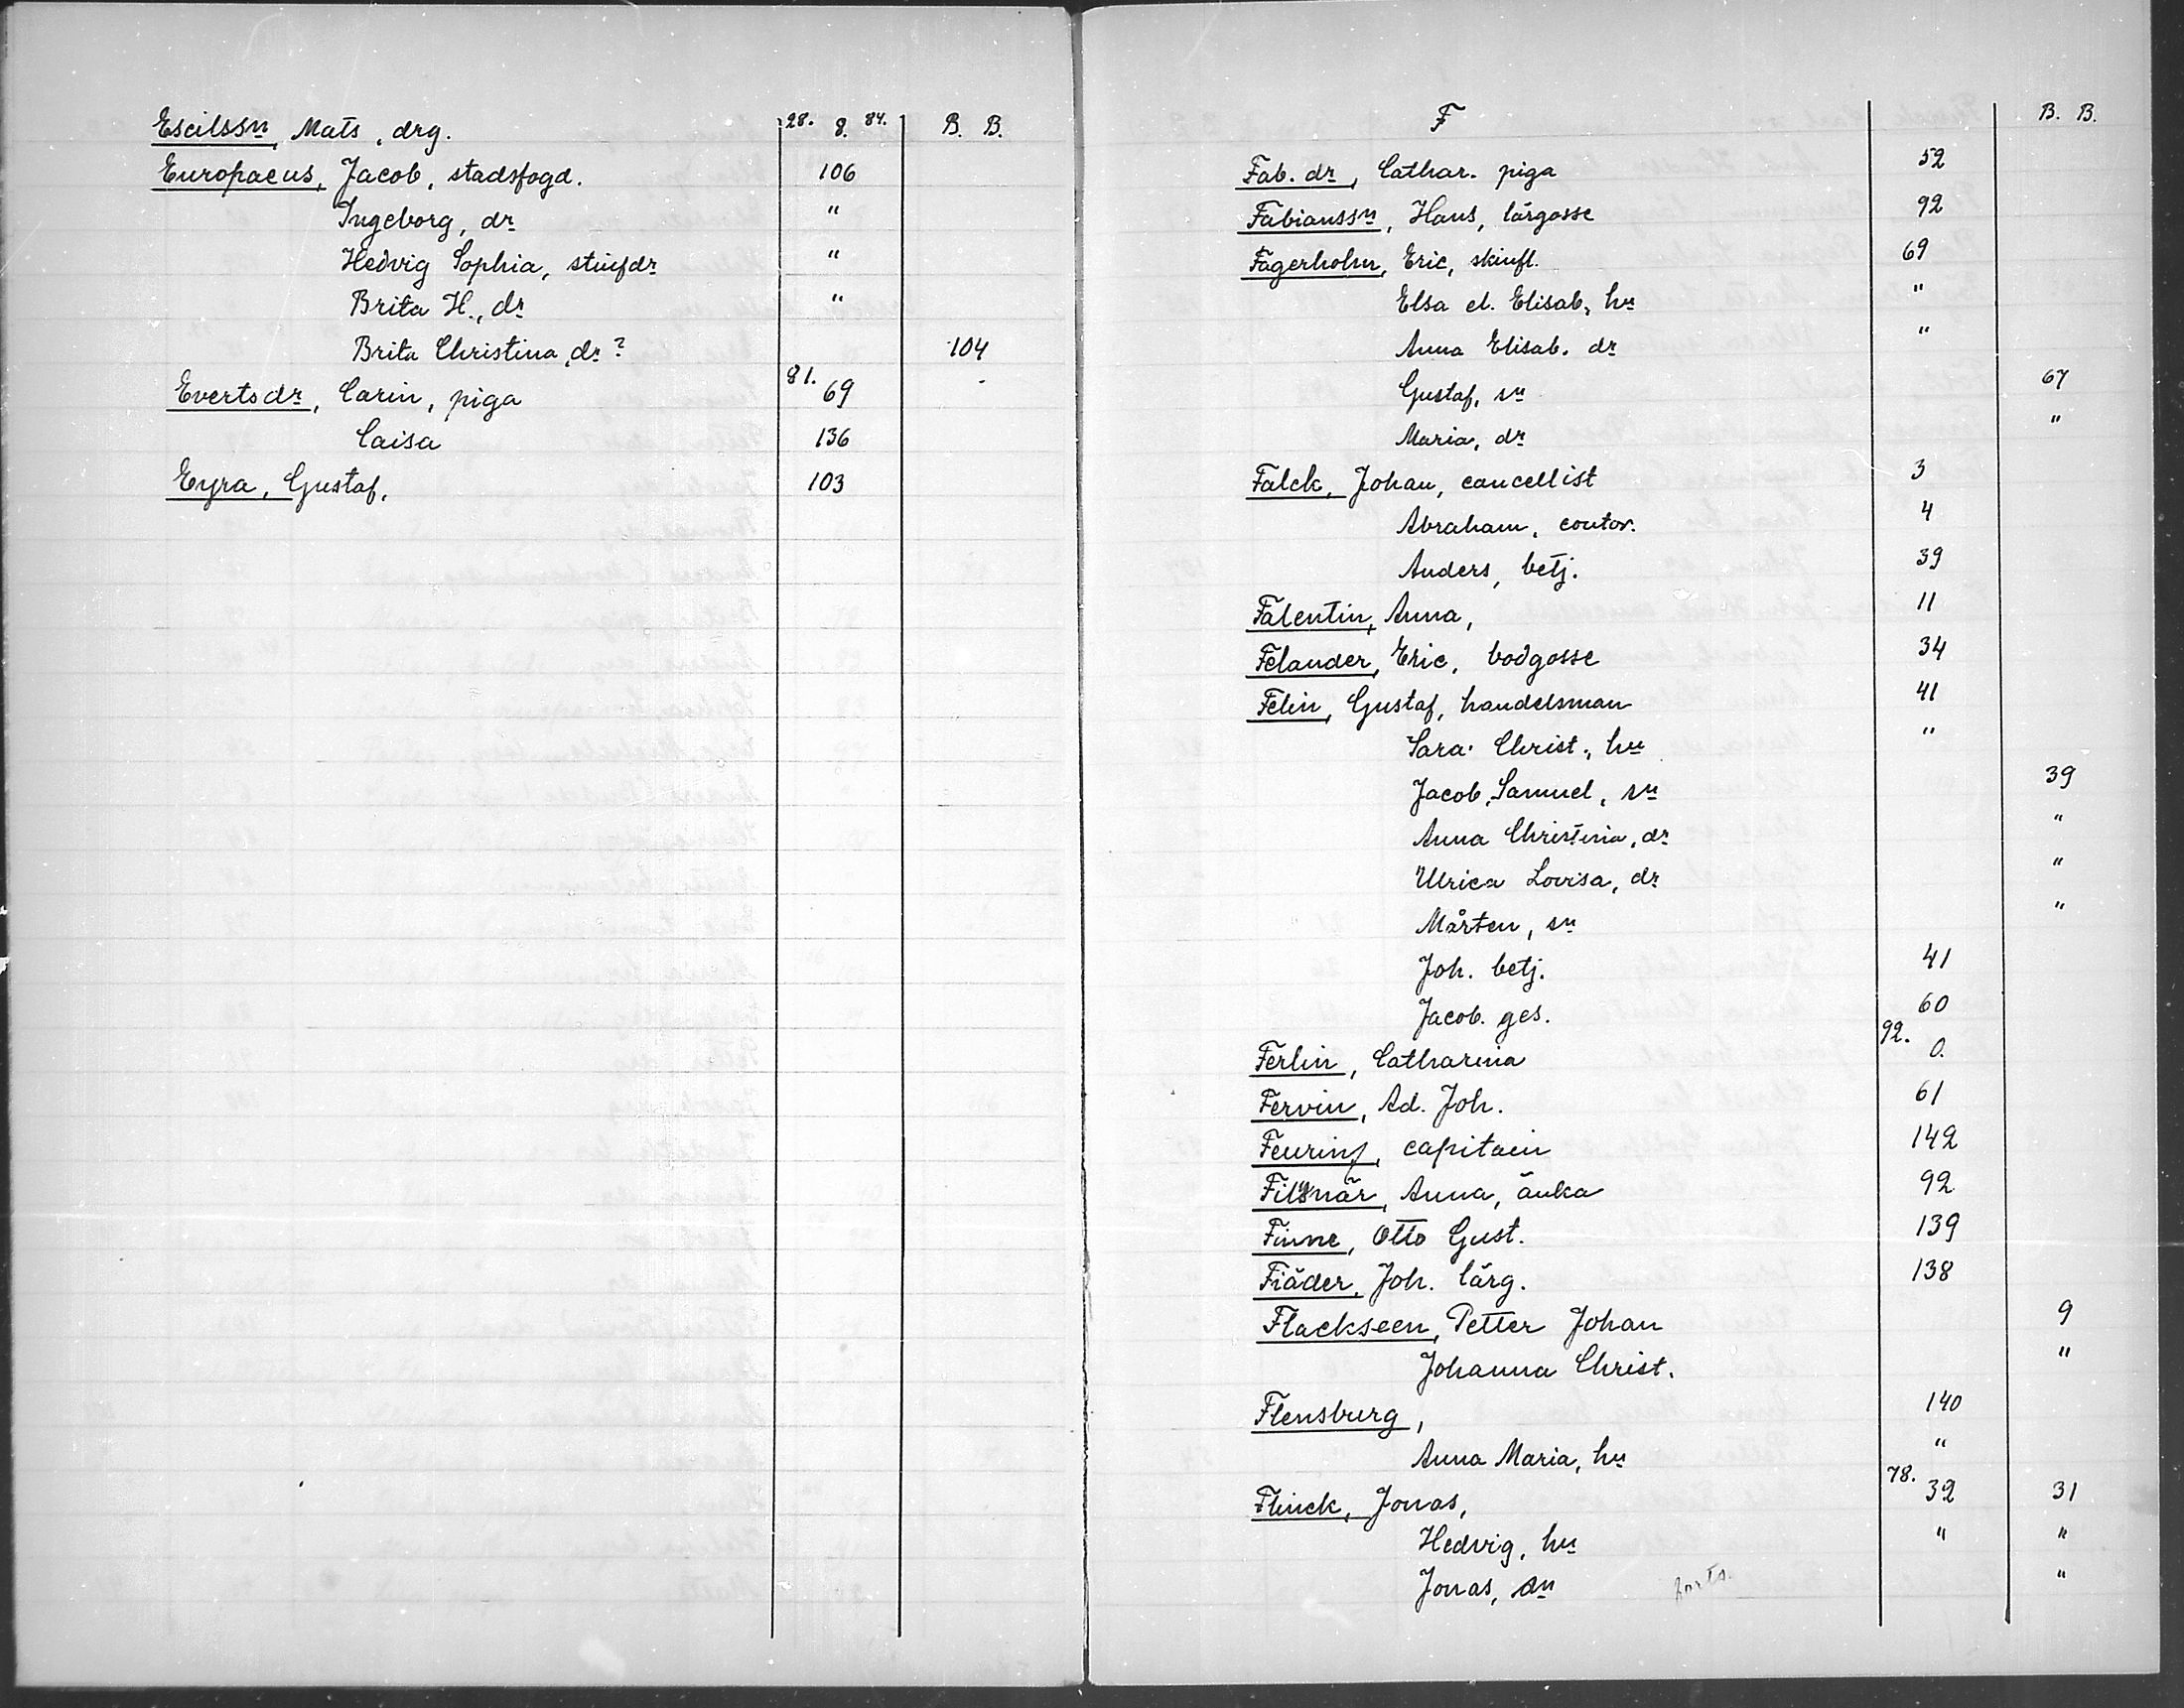 Escilssn, Mats, drg. 28. 8. 84. B. B.
Europaeus, Jacob, stadsfogd. 106
Ingeborg, dr "
Hedvig Sophia, stiufdr "
Brita H., dr "
Brita Christina, dr? 104
Evertsdr, Carin, piga 81. 69
Caisa 136
Eyra, Gustaf, 103
F B. B.
Fab. dr, Cathar. piga 52
Fabianssn, Hans, lärgosse 92
Fagerholm, Eric, skinfl. 69
Elsa el. Elisab., hu "
Anna Elisab. dr "
Gustaf, sn 67
Maria, dr "
Falck, Johan, cancellist 3
Abraham, contor. 4
Anders, betj. 39
Falentin, Anna, 11
Felander, Eric, bodgosse 34
Felin, Gustaf, handelsman 41
Sara Christ., hu "
Jacob, Samuel, sn 39
Anna Christina, dr "
Ulrica Lovisa, dr "
Mårten, sn "
Joh. betj. 41
Jacob. ges. 60
Ferlin, Catharina 92. 0.
Fervin, Ad. Joh. 61
Feurin, capitain 142
Anna, änka 92
Finne, Otto Gust. 139
Fiäder, Joh. lärg. 138
Flackseen, Petter Johan 9
Johanna Christ. "
Flensburg, 140
Anna Maria, hu "
Flinck, Jonas, 78. 32 31
Hedvig, hu " "
Jonas, sn forts. "